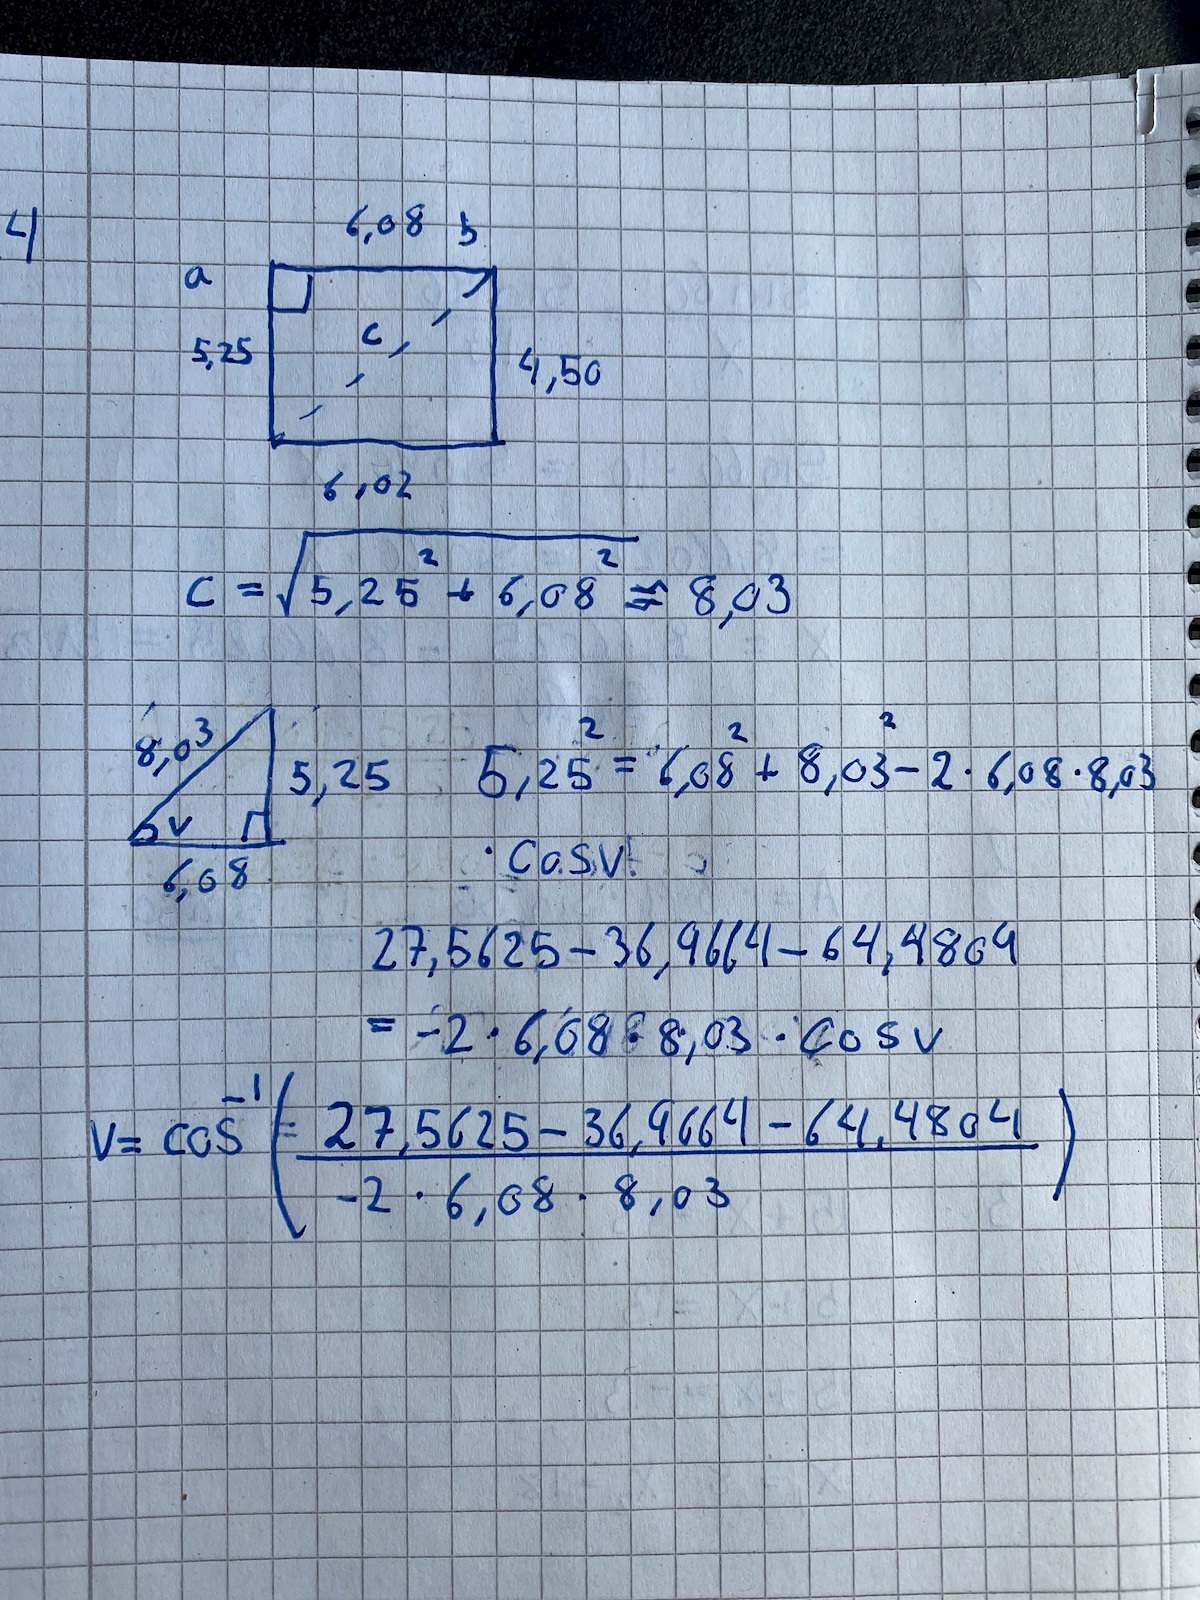 4)
6,08 b
a
c
5,25
4,50
6,02
c = √5,25² + 6,08² ≈ 8,03
8,03
5,25
v
6,08
5,25² = 6,08² + 8,03² - 2 · 6,08 · 8,03
· cos v
27,5625 - 36,9664 - 64,4809
= -2 · 6,08 · 8,03 · cos v
v = cos⁻¹ (= 27,5625 - 36,9664 - 64,4804
-2 · 6,08 · 8,03 )